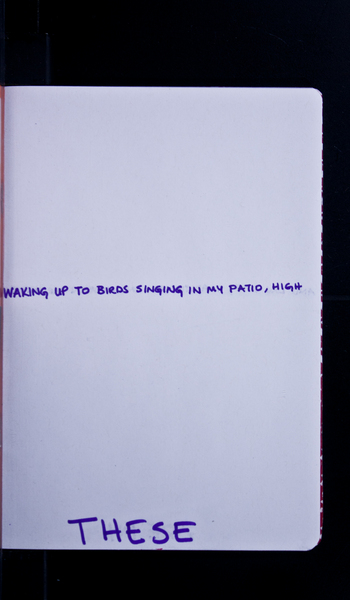 WAKING UP TO BIRDS SINGING IN MY PATIO, HIGH
THESE